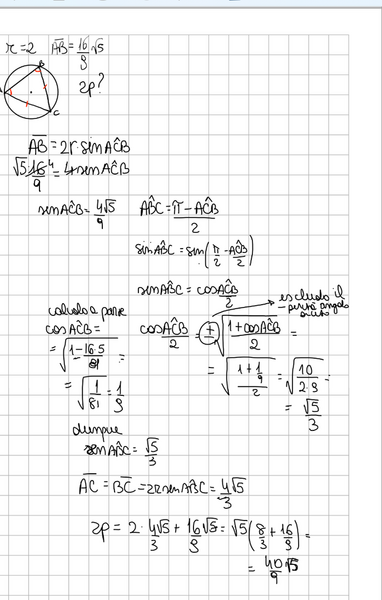 r=2 AB=16/9 √5
B
2p?
A
C
AB=2r·sinAĈB
√5·16/9 ⁴=4senAĈB
senAĈB=4√5/9 AB̂C=π-AĈB/2
sinAB̂C=sin(π/2-AĈB/2)
senAB̂C=cosAĈB/2
escludo il
- perché angolo
acuto
calcolo a parte
cosAĈB= cosAĈB/2=±√1+cosAĈB/2=
=√1-16·5/81=
=√1+1/9/2=√10/2·9=
=√1/81=1/9
=√5/3
dunque
senAB̂C=√5/3
AC=BC=2rsenABC=4√5/3
2p=2·4√5/3+16√5/9=√5(8/3+16/9)=
=40/9√5